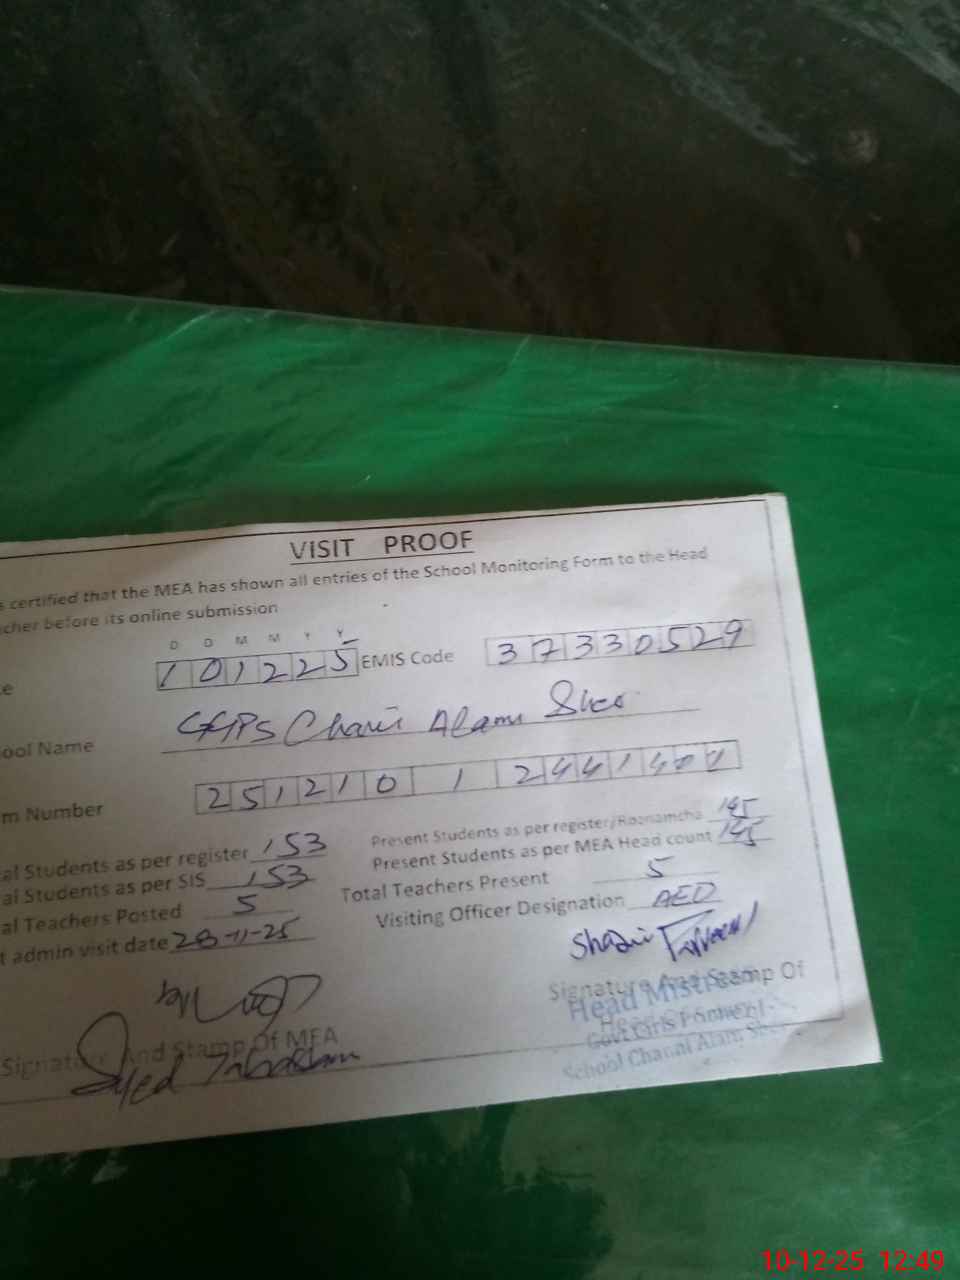 VISIT PROOF
s certified that the MEA has shown all entries of the School Monitoring Form to the Head
cher before its online submission
D D M M Y Y
e 101225 EMIS Code 37330529
ool Name GGPS Alam Sher
m Number 251210 1 2441
al Students as per register 153 Present Students as per register/Roznamcha 145
al Students as per SIS 153 Present Students as per MEA Head count 145
al Teachers Posted 5 Total Teachers Present 5
t admin visit date 28-11-25 Visiting Officer Designation AEO
Signature And Stamp Of
Head Mistress
Govt Girls Primary
School Alam Sher
Signature And Stamp Of MEA
Syed
10-12-25 12:49